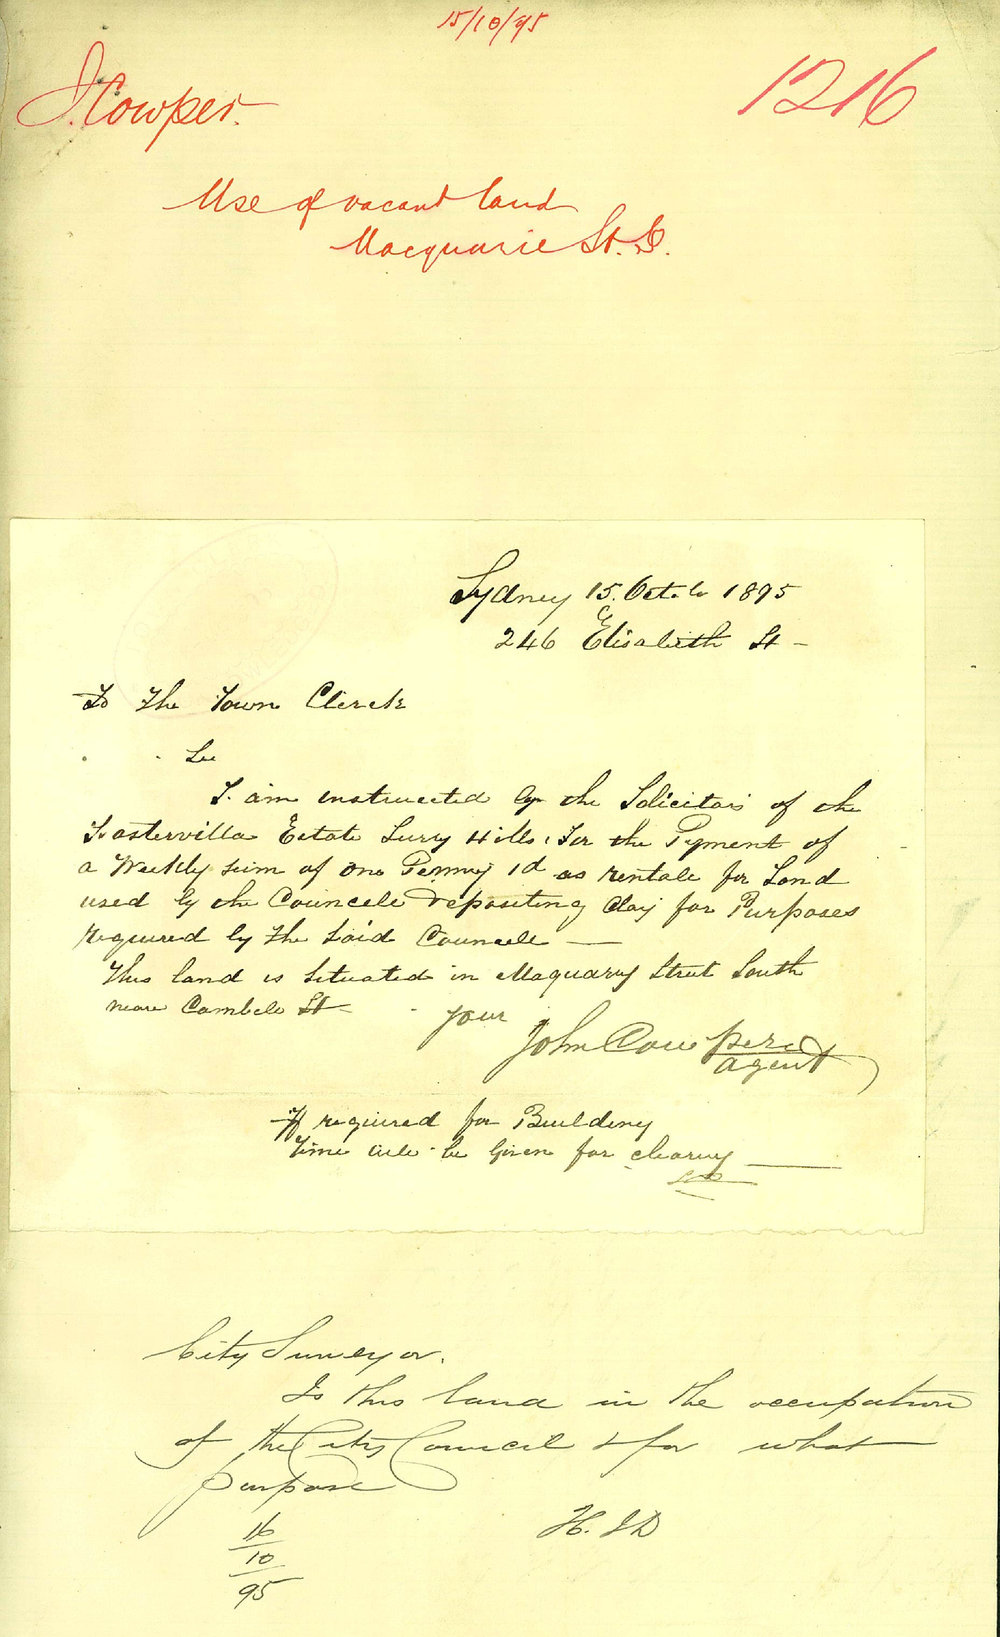 15/10/95
J. Cowper.
1216
Use of vacant land
Macquarie St. S.
Sydney 15. Octob 1895
246 Elisabeth St -
To The Town Clerck
I am instructed by the Solicitors of the
Fostervilla Estate Surry Hills. For the Pyment of
a Weekly sum of one Penny 1d as rentale for Land
used by the Councele depositing Clay for Purposes
required by the Said Councele —
This land is Situated in Maquarry Street South
near Cambele St -
your
John Cowper
agent
If required for Building
Time wile be Given for clearing —
City Surveyor.
Is this land in the occupation
of the City Council & for what
purpose
H. J D
16
10
95